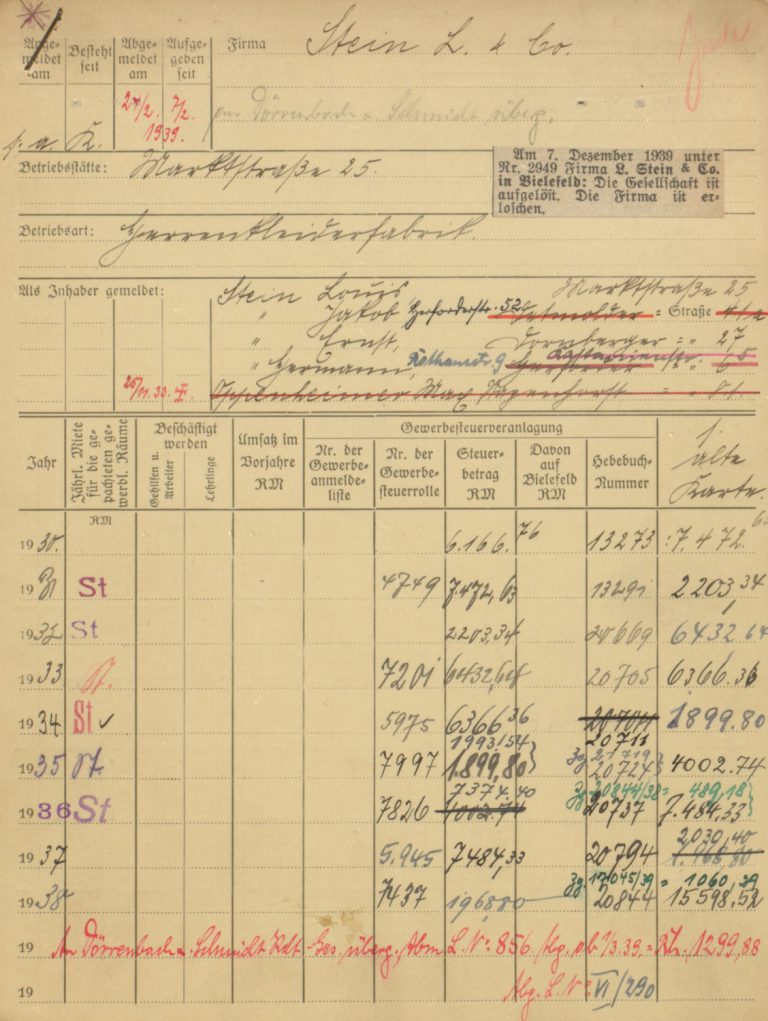 Ange-meldet am
Besteht seit
Abge-meldet am
Aufge-geben seit
Firma Stein L. & Co.
24/2. 7/2.
1939.
an Dörrenbach & Schmidt überg.
K.
Betriebsstätte: Marktstraße 25.
Am 7. Dezember 1939 unter
Nr. 2949 Firma L. Stein & Co.
in Bielefeld: Die Gesellschaft ist
aufgelöst. Die Firma ist er-
loschen.
Betriebsart: Herrenkleiderfabrik.
Als Inhaber gemeldet: Stein Louis Marktstraße 25
" Jakob Herforderstr. 52 Detmolder = Straße 41a
" Ernst, Dornberger = " 27
" Hermann, 9 Kastanienstr " 65
25/11.33. Oppenheimer Max
Jahr
Jährl. Miete für die ge-pachteten ge-werbl. Räume
RM
Beschäftigt werden
Gehilfen u. Arbeiter
Lehrlinge
Umsatz im Vorjahre RM
Gewerbesteuerveranlagung
Nr. der Gewerbe-anmelde-liste
Nr. der Gewerbe-steuerrolle
Steuer-betrag RM
Davon auf Bielefeld RM
Hebebuch-Nummer
alte Karte.
1930. 6.166.76 13273 7.472.
1931 St 4749 7.472,63 13291 2203,34
1932 St 2203.34 20669 6432.64
1933 St. 7201 6432,64 20705 6366.36
1934 St ✓ 5975 6366,36 20711 1899.80
1993/54
1935 St. 7997 1.899,80 20724 4002.74
7374.40 20844/38 = 489,18
1936 St 7826 4002.74 20737 7.484,33
2030,40
1937 5.945 7484,33 20794
17045/39 = 1060,39
1938 7437 1968.80 20844 15598,52
19 An Dörrenbach & Schmidt Kdt Ges. überg. Abm L. No. 856 ab 1/3.39. = 1299,88
19 Abg. L. No. VI/290